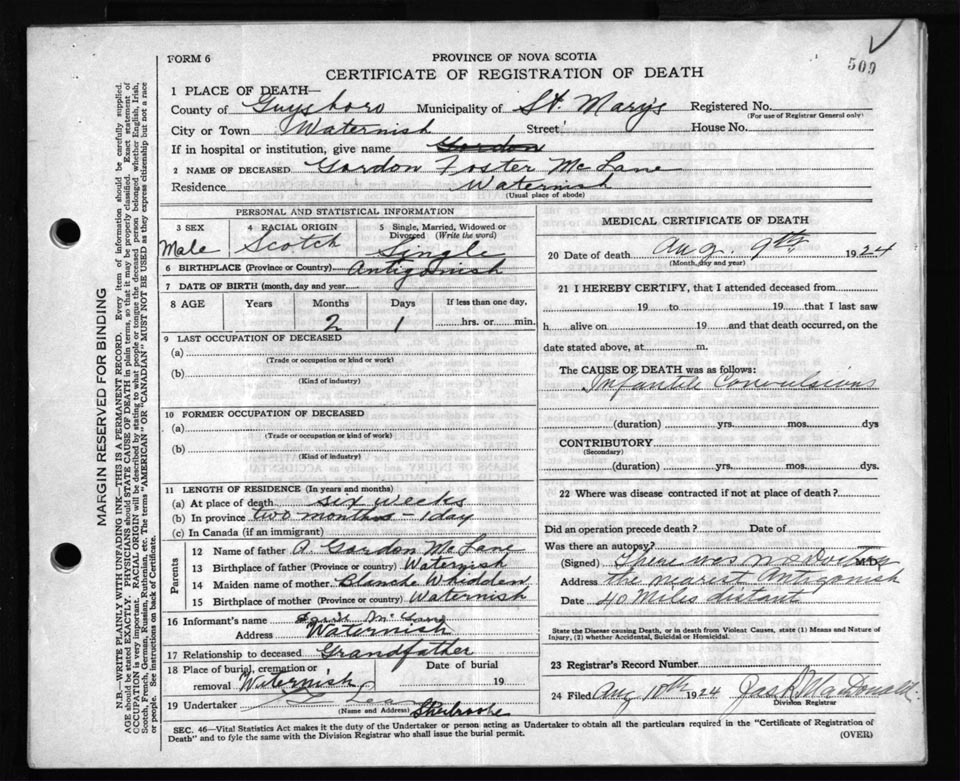 509
FORM 6
PROVINCE OF NOVA SCOTIA
CERTIFICATE OF REGISTRATION OF DEATH
1 PLACE OF DEATH—
County of Guysboro Municipality of St. Mary's Registered No.
(For use of Registrar General only)
City or Town Waternish Street House No.
If in hospital or institution, give name Gordon
2 NAME OF DECEASED Gordon Foster McLane
Residence Waternish
(Usual place of abode)
PERSONAL AND STATISTICAL INFORMATION
3 SEX 4 RACIAL ORIGIN 5 Single, Married, Widowed or Divorced (Write the word)
Male Scotch Single
6 BIRTHPLACE (Province or Country) Antigonish
7 DATE OF BIRTH (month, day and year)
8 AGE Years Months Days If less than one day,
2 1 hrs. or min.
9 LAST OCCUPATION OF DECEASED
(a)
(Trade or occupation or kind or work)
(b)
(Kind of industry)
10 FORMER OCCUPATION OF DECEASED
(a)
(Trade or occupation or kind of work)
(b)
(Kind of industry)
11 LENGTH OF RESIDENCE (In years and months)
(a) At place of death six weeks
(b) In province two months - 1 day
(c) In Canada (if an immigrant)
Parents
12 Name of father A. Gordon McLane
13 Birthplace of father (Province or Country) Waternish
14 Maiden name of mother Blanche Whidden
15 Birthplace of mother (Province or country) Waternish
16 Informant's name McLane
Address Waternish
17 Relationship to deceased Grandfather
18 Place of burial, cremation or removal Waternish Date of burial 19
19 Undertaker Sherbrooke
(Name and Address)
MEDICAL CERTIFICATE OF DEATH
20 Date of death Aug. 9th, 1924
(Month, day and year)
21 I HEREBY CERTIFY, that I attended deceased from
19 to 19 that I last saw
h alive on 19 and that death occurred, on the
date stated above, at m.
The CAUSE OF DEATH was as follows:
Infantile Convulsions
(duration) yrs. mos. dys
CONTRIBUTORY
(Secondary)
(duration) yrs. mos. dys.
22 Where was disease contracted if not at place of death?
Did an operation precede death? Date of
Was there an autopsy?
(Signed) There was no Doctor M.D.
Address the nearest Antigonish
Date 40 Miles distant
State the Disease causing Death, or in death from Violent Causes, state (1) Means and Nature of
Injury, (2) whether Accidental, Suicidal or Homicidal.
23 Registrar's Record Number
24 Filed Aug 10th 1924 MacDonald
Division Registrar
SEC. 46—Vital Statistics Act makes it the duty of the Undertaker or person acting as Undertaker to obtain all the particulars required in the "Certificate of Registration of
Death" and to fyle the same with the Division Registrar who shall issue the burial permit. (OVER)
MARGIN RESERVED FOR BINDING
N.B.—WRITE PLAINLY WITH UNFADING INK—THIS IS A PERMANENT RECORD. Every item of information should be carefully supplied.
AGE should be stated EXACTLY. PHYSICIANS should STATE CAUSE OF DEATH in plain terms, so that it may be properly classified. Exact statement of
OCCUPATION is very important. RACIAL ORIGIN will be described by stating to what people or tongue the deceased person belonged whether English, Irish,
Scotch, French, German, Russian, Ruthenian, etc. The terms "AMERICAN" or "CANADIAN" MUST NOT BE USED as they express citizenship but not a race
or people. See instructions on back of Certificate.